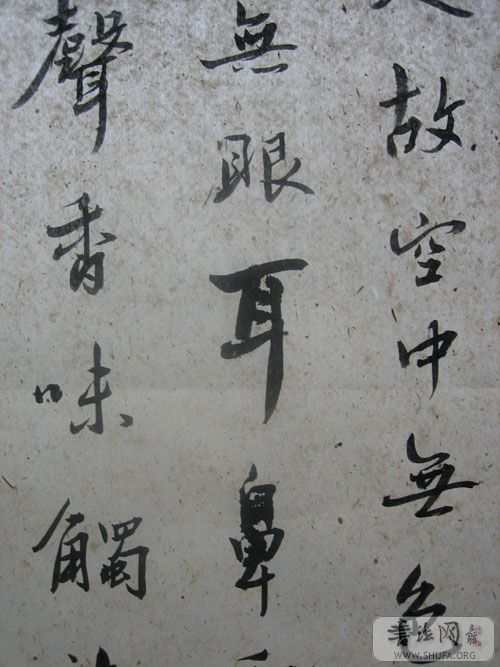 故空中無色
無眼耳鼻
聲香味觸
书法网
WWW.SHUFA.ORG